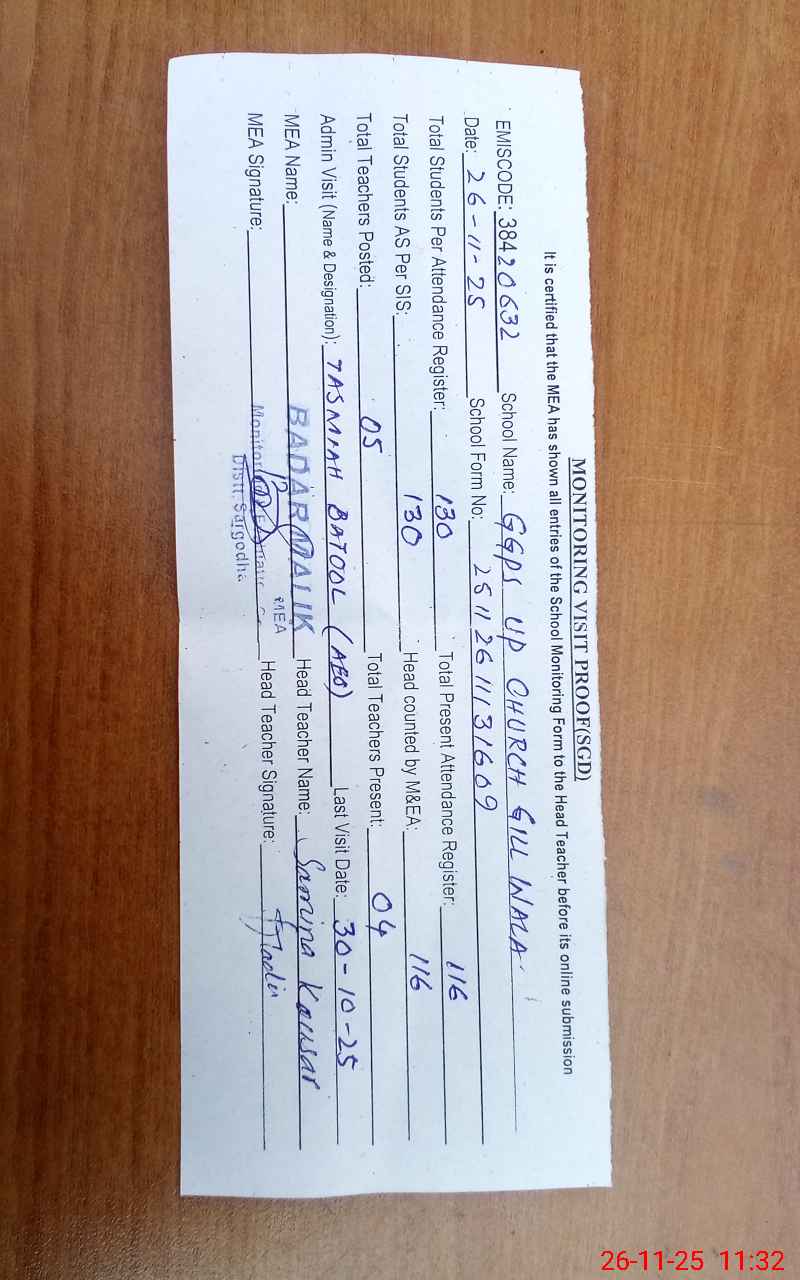 MONITORING VISIT PROOF(SGD)
It is certified that the MEA has shown all entries of the School Monitoring Form to the Head Teacher before its online submission
EMISCODE: 38420632 School Name: GGPS UP CHURCH GILL WALA
Date: 26-11-25 School Form No: 25112611131609
Total Students Per Attendance Register: 130 Total Present Attendance Register: 116
Total Students AS Per SIS: 130 Head counted by M&EA: 116
Total Teachers Posted: 05 Total Teachers Present: 04
Admin Visit (Name & Designation): TASMIAH BATOOL (AEO) Last Visit Date: 30-10-25
MEA Name: BADAR MALIK Head Teacher Name: Samina Kausar
MEA
MEA Signature: Head Teacher Signature:
Distt: Sargodha
26-11-25 11:32